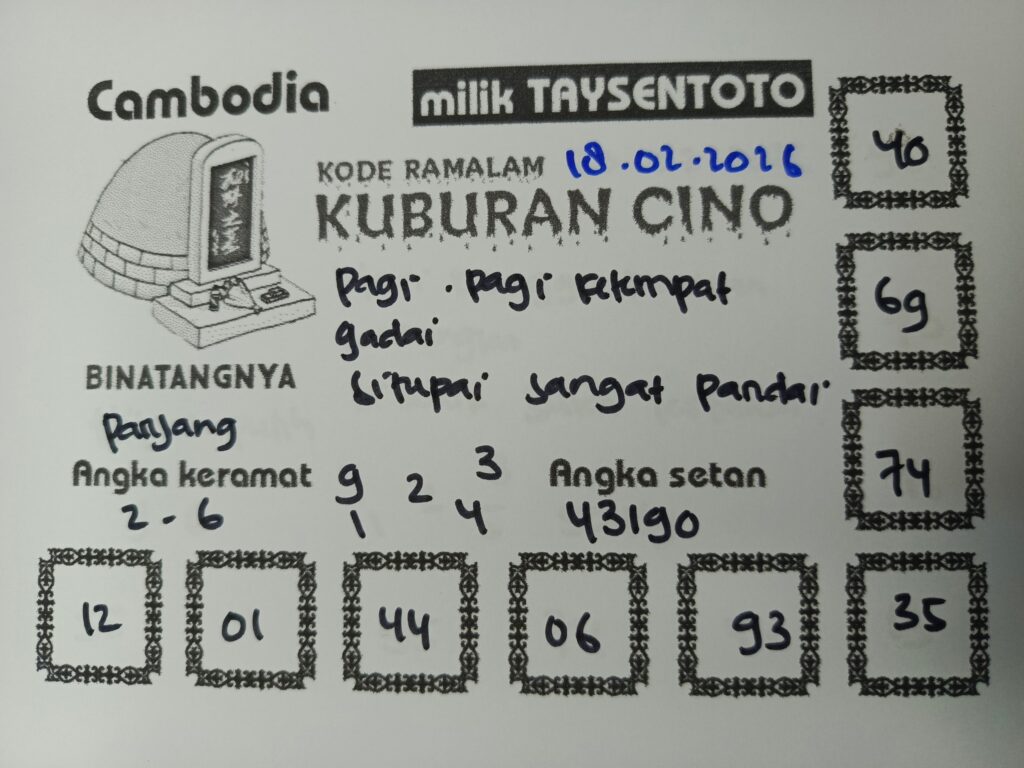 Cambodia
milik TAYSENTOTO
KODE RAMALAM 18.02.2026
KUBURAN CINO
Pagi . pagi ketempat
gadai
Situpai sangat pandai
BINATANGNYA
Panjang
Angka keramat
2 - 6
9 2 3
1 4
Angka setan
43190
40
69
74
12 01 44 06 93 35